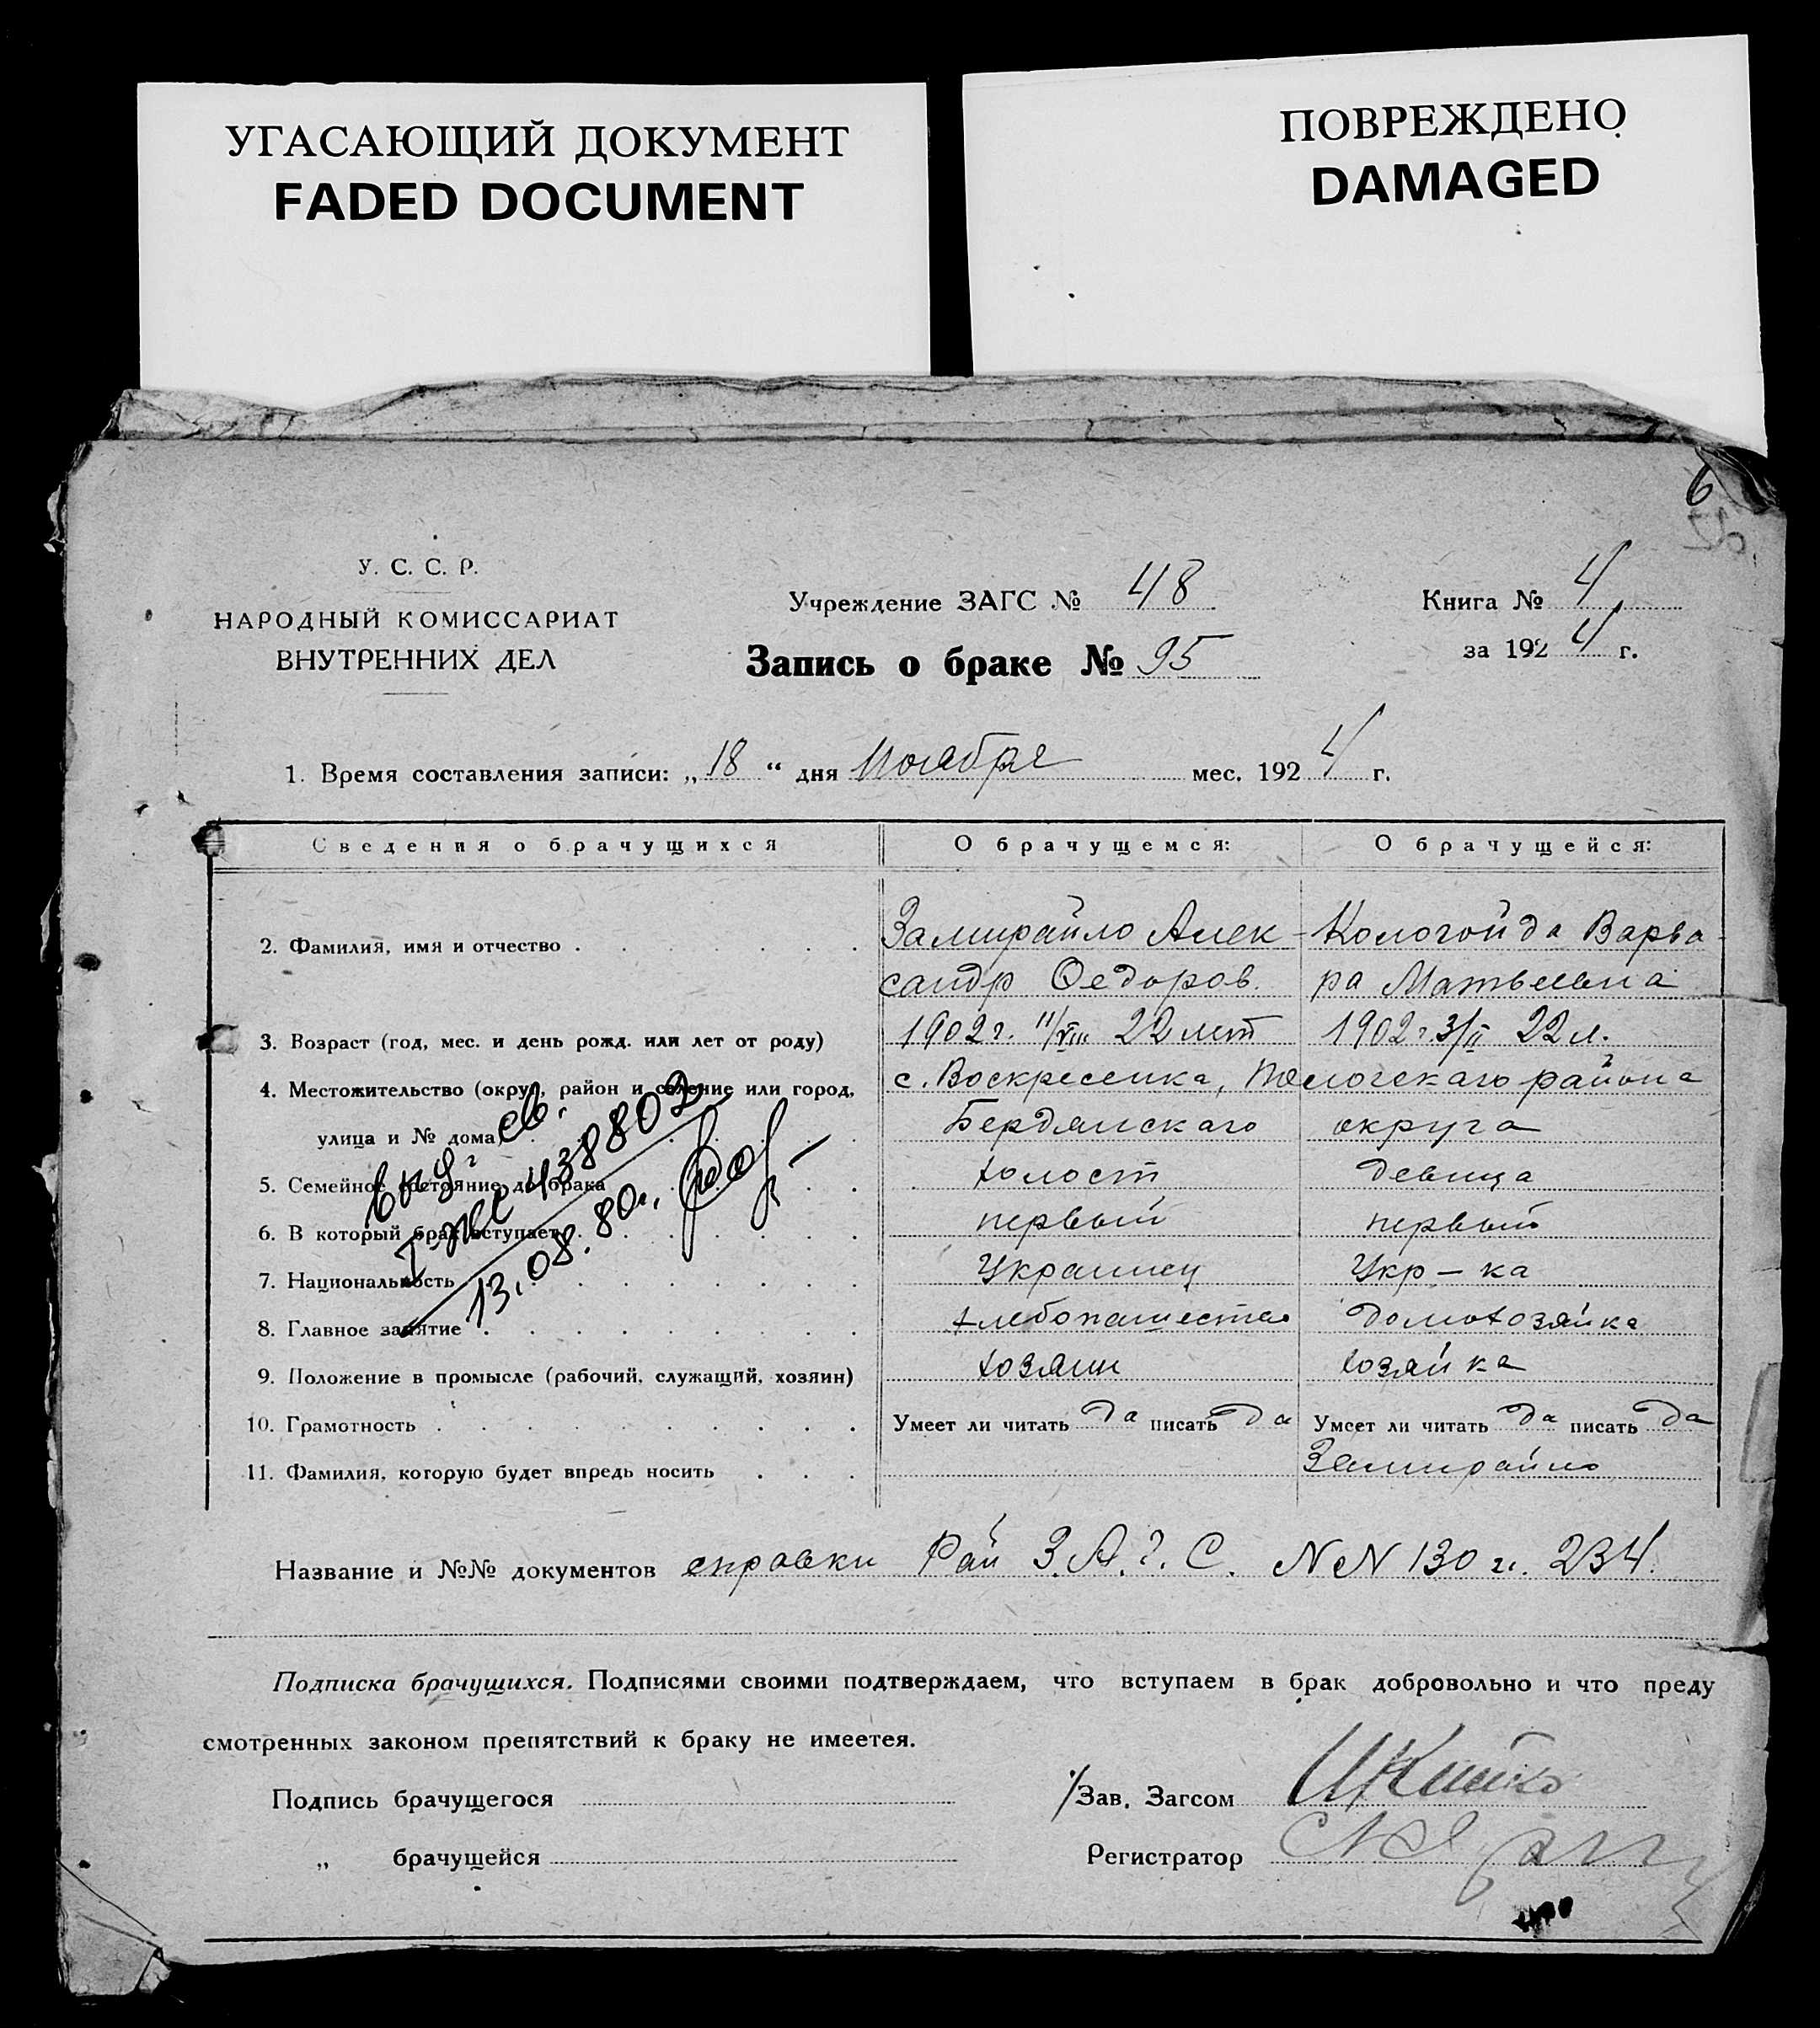 УГАСАЮЩИЙ ДОКУМЕНТ
FADED DOCUMENT
ПОВРЕЖДЕНО
DAMAGED
6
У. С. С. Р.
НАРОДНЫЙ КОМИССАРИАТ
ВНУТРЕННИХ ДЕЛ
Учреждение ЗАГС № 48
Запись о браке № 95
Книга № 4
за 1924 г.
1. Время составления записи: „18“ дня Ноября мес. 1924 г.
Сведения о брачущихся О брачущемся: О брачущейся:
2. Фамилия, имя и отчество Замирайло Алек- Кологойда Варва-
сандр Федоров. ра Матвеевна
3. Возраст (год, мес. и день рожд. или лет от роду) 1902 г. 11/VIII 22 лет 1902 г. 3/II 22 л.
4. Местожительство (округ, район и селение или город, с. Воскресенка, Пологскаго района
улица и № дома) Бердянскаго округа
5. Семейное состояние до брака холост девица
6. В который брак вступает первый первый
7. Национальность Украинец Укр-ка
8. Главное занятие хлебопашество домохозяйка
9. Положение в промысле (рабочий, служащий, хозяин) хозяин хозяйка
10. Грамотность Умеет ли читать да писать да Умеет ли читать да писать да
11. Фамилия, которую будет впредь носить Замирайло
св.
438802
13.08.80г.
Название и №№ документов справки Рай З.А.Г.С. NN 130 и 234.
Подписка брачущихся. Подписями своими подтверждаем, что вступаем в брак добровольно и что преду
смотренных законом препятствий к браку не имеетея.
Подпись брачущегося
„ брачущейся
Зав. Загсом
Регистратор